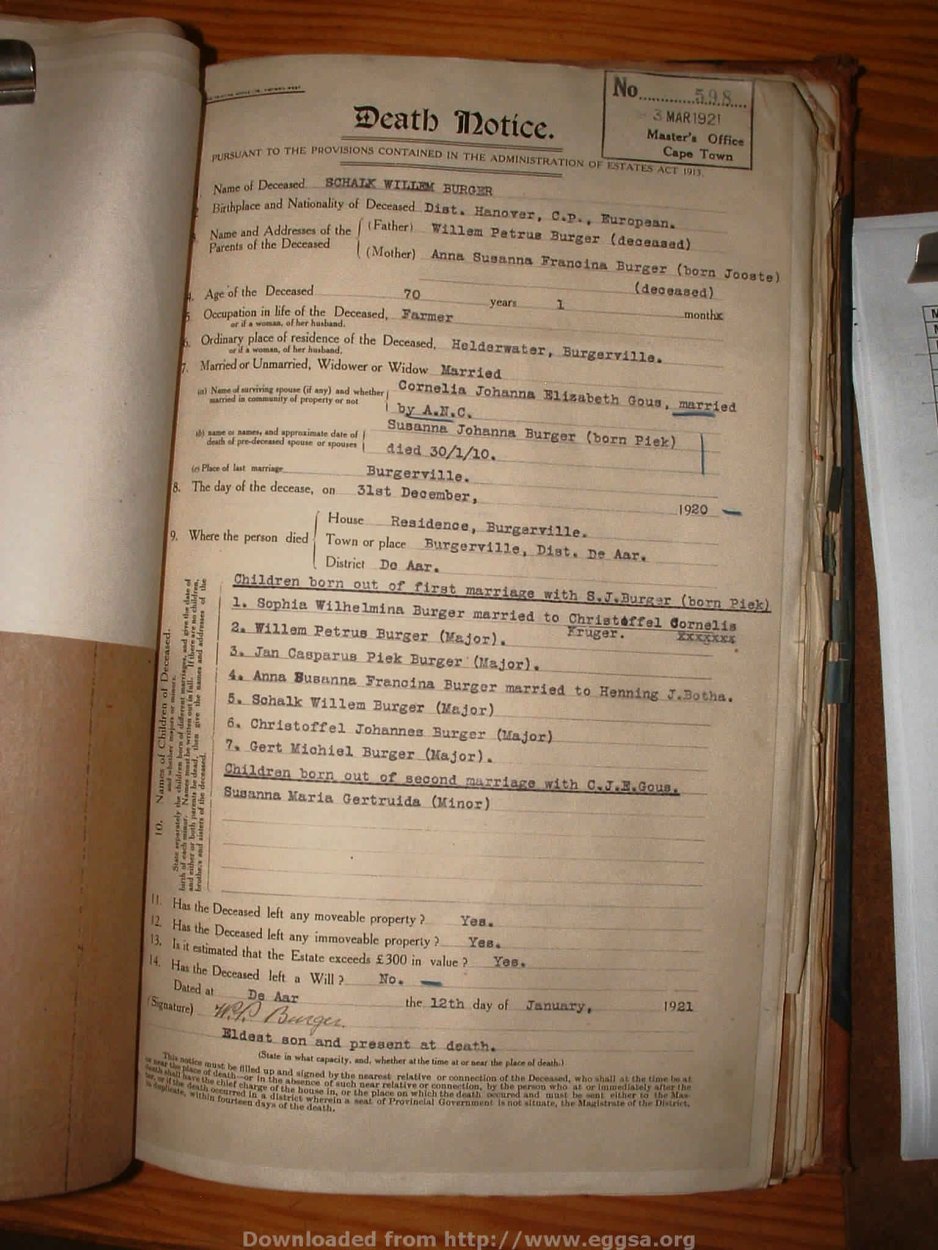 No. 598
3 MAR 1921
Master's Office
Cape Town
Death Notice.
PURSUANT TO THE PROVISIONS CONTAINED IN THE ADMINISTRATION OF ESTATES ACT 1913.
Name of Deceased SCHALK WILLEM BURGER
Birthplace and Nationality of Deceased Dist. Hanover, C.P., European.
Name and Addresses of the Parents of the Deceased (Father) Willem Petrus Burger (deceased)
(Mother) Anna Susanna Francina Burger (born Jooste)
(deceased)
4. Age of the Deceased 70 years 1 months
5. Occupation in life of the Deceased, Farmer
or if a woman, of her husband.
6. Ordinary place of residence of the Deceased, Helderwater, Burgerville.
or if a woman, of her husband.
7. Married or Unmarried, Widower or Widow Married
(a) Name of surviving spouse (if any) and whether married in community of property or not Cornelia Johanna Elizabeth Gous, married
by A.N.C.
(b) name or names, and approximate date of death of pre-deceased spouse or spouses Susanna Johanna Burger (born Piek)
died 30/1/10.
(c) Place of last marriage Burgerville.
8. The day of the decease, on 31st December, 1920
9. Where the person died House Residence, Burgerville.
Town or place Burgerville, Dist. De Aar.
District De Aar.
10. Names of Children of Deceased.
and whether majors or minors.
State separately the children born of different marriages, and give the date of
birth of each minor. Names must be written out in full. If there are no children,
and either or both parents be dead, then give the names and addresses of the
brothers and sisters of the deceased.
Children born out of first marriage with S.J.Burger (born Piek)
1. Sophia Wilhelmina Burger married to Christoffel Cornelis
Kruger. xxxxxxx
2. Willem Petrus Burger (Major).
3. Jan Casparus Piek Burger (Major).
4. Anna Susanna Francina Burger married to Henning J.Botha.
5. Schalk Willem Burger (Major)
6. Christoffel Johannes Burger (Major)
7. Gert Michiel Burger (Major).
Children born out of second marriage with C.J.E.Gous.
Susanna Maria Gertruida (Minor)
11. Has the Deceased left any moveable property ? Yes.
12. Has the Deceased left any immoveable property ? Yes.
13. Is it estimated that the Estate exceeds £300 in value ? Yes.
14. Has the Deceased left a Will ? No.
Dated at De Aar the 12th day of January, 1921
(Signature) W.P. Burger.
Eldest son and present at death.
(State in what capacity, and, whether at the time at or near the place of death.)
This notice must be filled up and signed by the nearest relative or connection of the Deceased, who shall at the time be at
or near the place of death—or in the absence of such near relative or connection, by the person who at or immediately after the
death shall have the chief charge of the house in, or the place on which the death occured and must be sent either to the Mas-
ter, or if the death occurred in a district wherein a seat of Provincial Government is not situate, the Magistrate of the District,
in duplicate, within fourteen days of the death.
Downloaded from http://www.eggsa.org